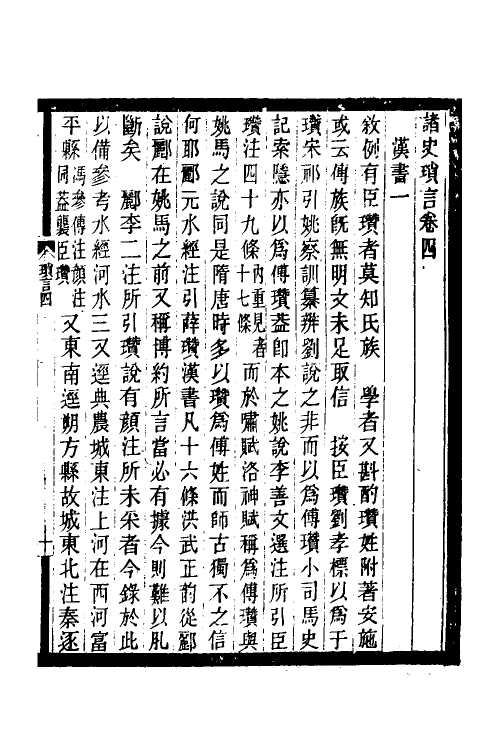 諸史瑣言卷四
漢書一
敘例有臣瓚者莫知氏族　學者又斟酌瓚姓附著安施
或云傅族旣無明文未足取信　按臣瓚劉孝標以爲于
瓚宋祁引姚察訓纂辨劉說之非而以爲傅瓚小司馬史
記索隱亦以爲傅瓚葢卽本之姚說李善文選注所引臣
瓚注四十九條內重見者十七條而於嘯賦洛神賦稱爲傅瓚與
姚馬之說同是隋唐時多以瓚爲傅姓而師古獨不之信
何耶酈元水經注引薛瓚漢書凡十六條洪武正韵從酈
說酈在姚馬之前又稱博約所言當必有據今則難以肊
斷矣　酈李二注所引瓚說有顏注所未采者今錄於此
以備參考水經河水三又逕典農城東注上河在西河富
平縣馮參傳注顏注同葢襲臣瓚又東南逕朔方縣故城東北注秦逐
瑣言四